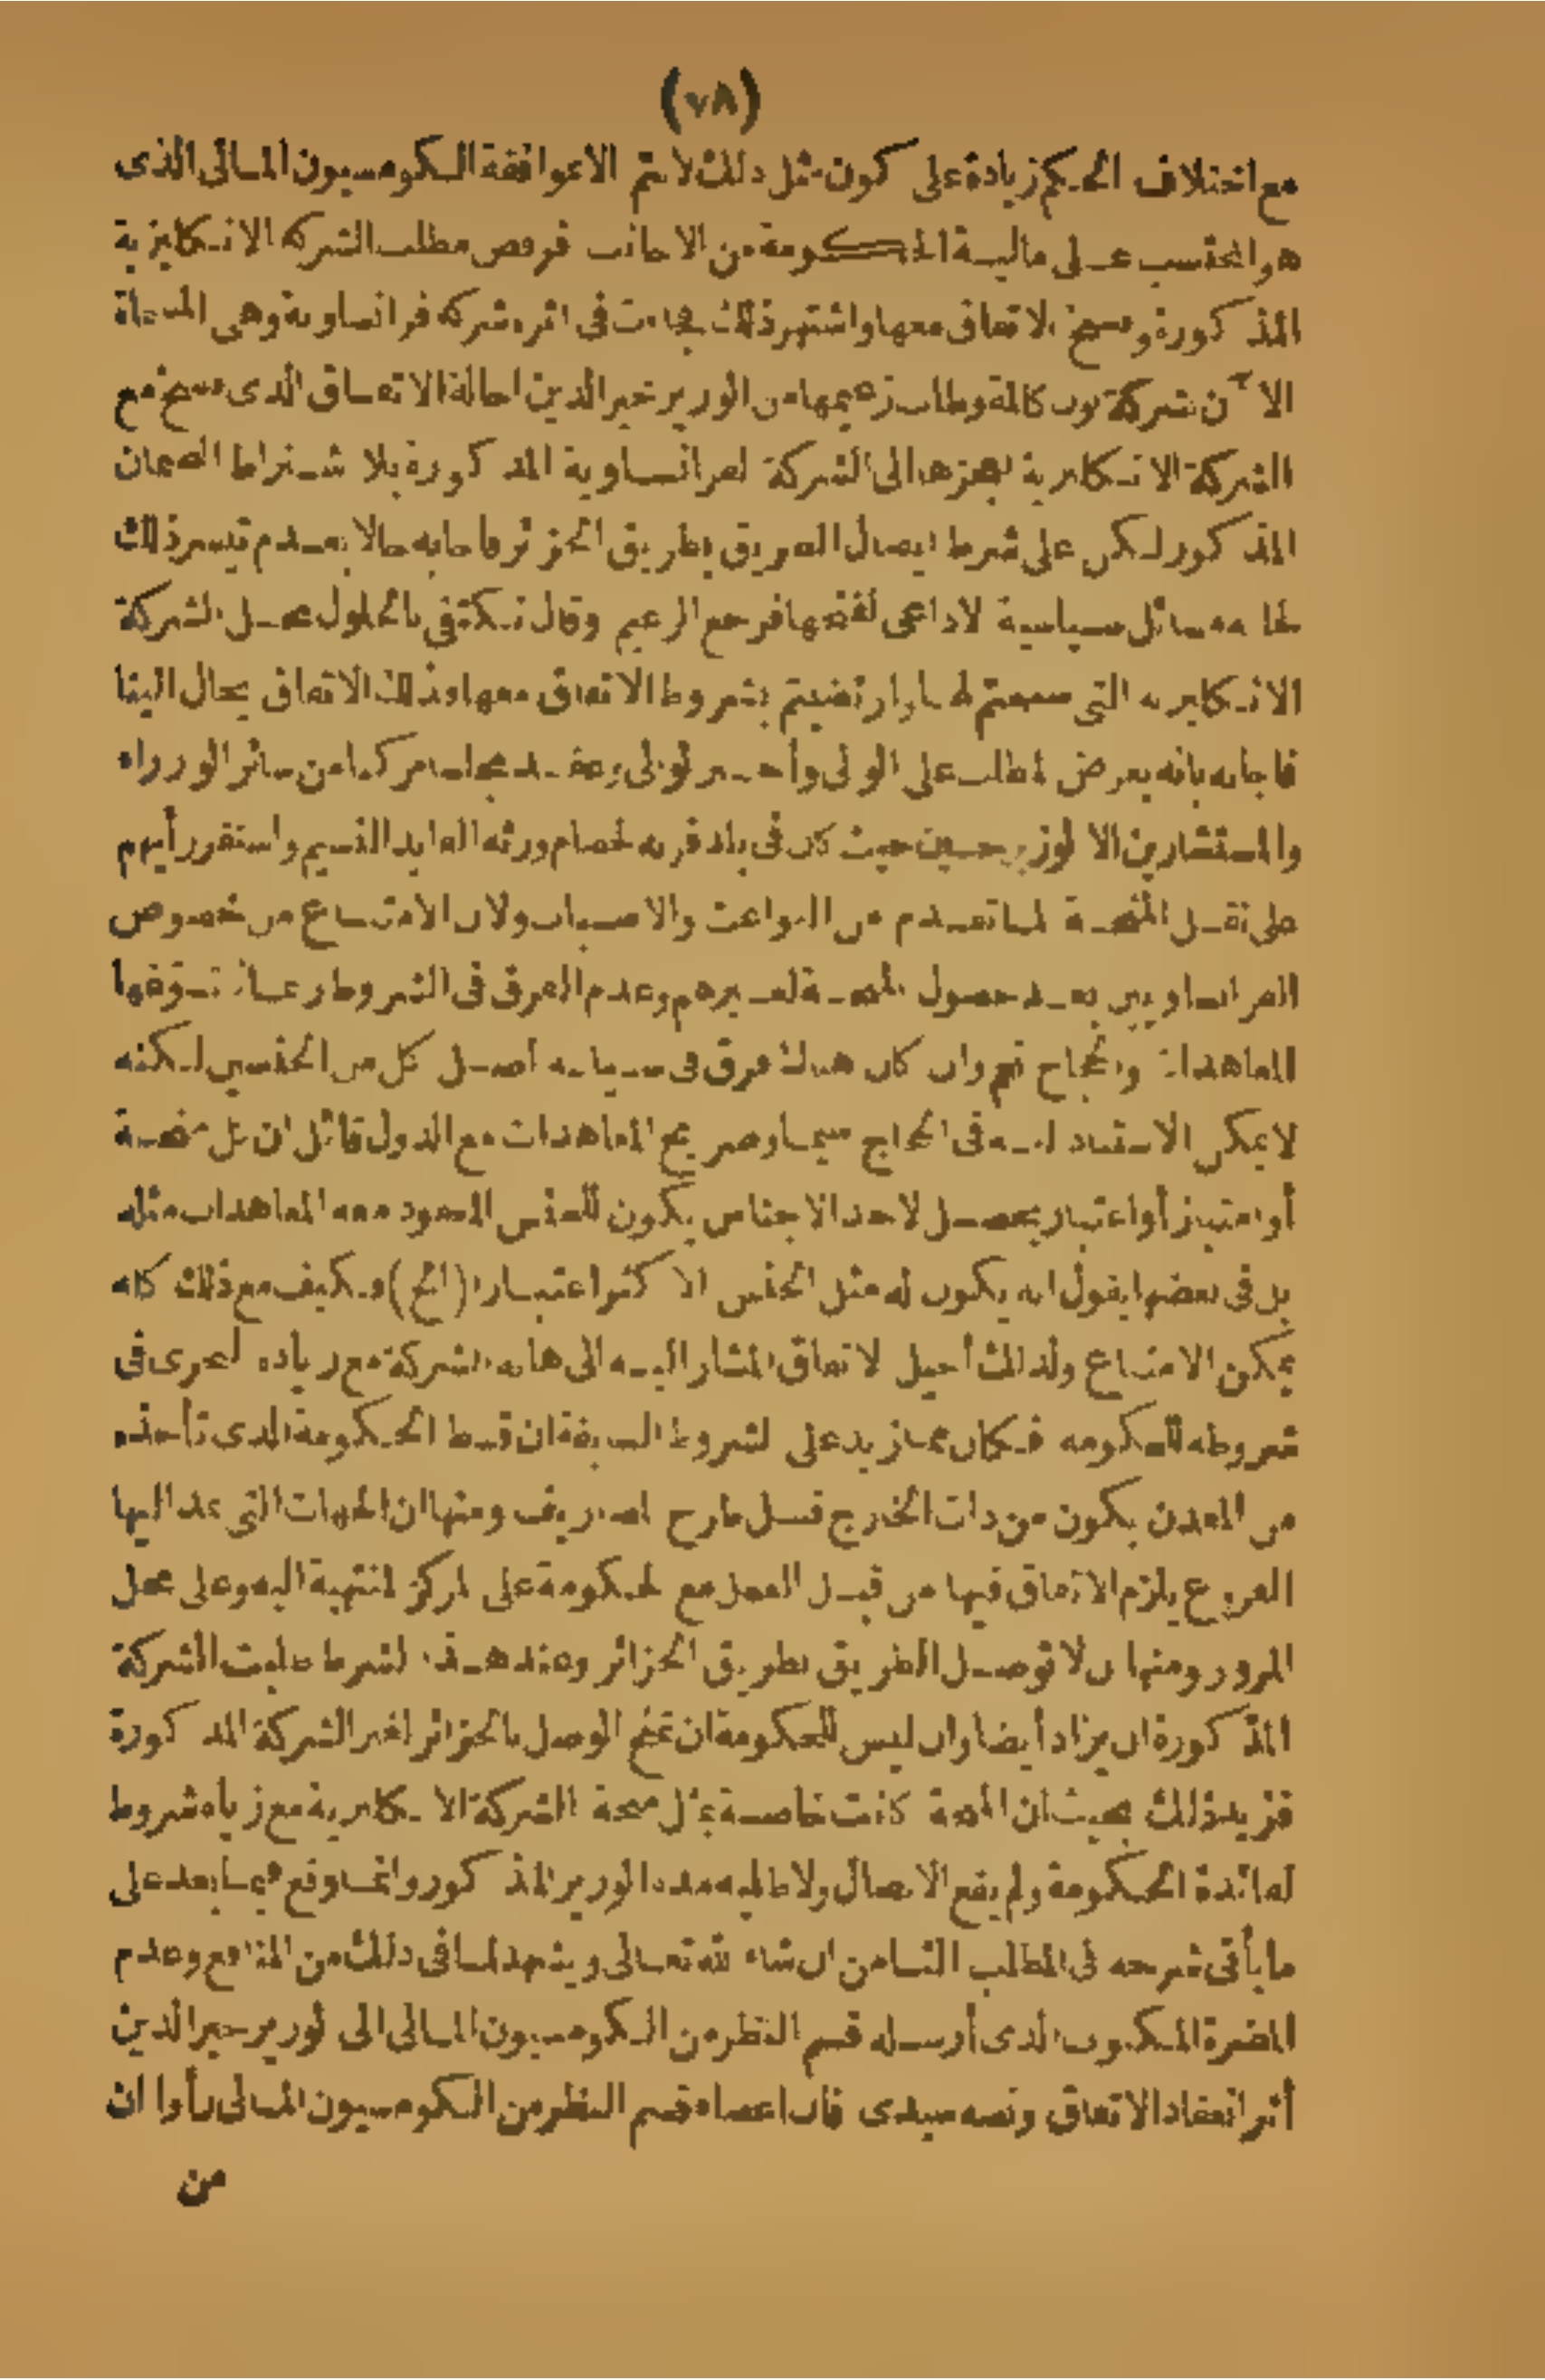 (٧٨)
مع اختلاف الحكم زيادة على كون مثل ذلك لا يتم الا بموافقة الكومسيون المالى الذى
هو المحتسب على مالية الحكومة من الاجانب فرفض مطلب الشركة الانكليزية
المذكورة وفسخ الاتفاق معها واشتهر ذلك فجاءت فى اثره شركة فرانساوية وهى المسماة
الآن شركة بون كالمة وطلب زعيمها من الوزير خير الدين احالة الاتفاق الذى فسخ مع
الشركة الانكليزية لعجزها الى الشركة الفرانساوية المذكورة بلا اشتراط الضمان
المذكور لكن على شرط ايصال الطريق بطريق الجزائر فاجابه حالا بعدم تيسر ذلك
لما معه مسائل سياسية لا داعى لفتحها فرجع الزعيم وقال نكتفى بالحلول محل الشركة
الانكليزية التى سمعتم لها وارتضيتم بشروط الاتفاق معها وذلك الاتفاق يحال الينا
فاجابه بانه يعرض المطلب على الوالى وأخبر الوالى وعقد مجلسا مركبا من سائر الوزراء
والمستشارين الا الوزير حسين حيث كان فى بلد قرنه لخصام ورثة القايد النسيم واستقر رأيهم
على نقل المنحة لما تقدم من البواعث والاسباب ولان الامتناع من خصوص
الفرانساويين بعد حصول المنحة لغيرهم وعدم الفرق فى الشروط ربما تسوقها
المعاهدات والحجاج نعم وان كان هناك فرق فى سياسة اصل كل من الجنسين لكنه
لا يمكن الاستناد اليه فى الحجاج سيما وصريح المعاهدات مع الدول قائل ان كل منحة
أو امتياز أو اعتبار يحصل لاحد الاجناس يكون للجنس المعقود معه المعاهدات مثله
بل فى بعضها يقول انه يكون له مثل الجنس الاكثر اعتبارا (الخ) وكيف مع ذلك كله
يمكن الامتناع ولذلك أحيل الاتفاق المشار اليه الى هاته الشركة مع زيادة اخرى فى
شروطه للحكومة فكان مما زيد على الشروط السابقة ان قسط الحكومة الذى تأخذه
من المعدن يكون من ذات الخارج قبل طرح المصاريف ومنها ان الجهات التى تمد اليها
الفروع يلزم الاتفاق فيها من قبل العمل مع الحكومة على المركز المنتهية اليه وعلى محل
المرور ومنها ان لا توصل الطريق بطريق الجزائر وعند هذا الشرط طلبت الشركة
المذكورة ان يزاد أيضا وان ليس للحكومة ان تمنح الوصل بالجزائر لغير الشركة المذكورة
فزيد ذلك بحيث ان المنحة كانت خاصة بمثل منحة الشركة الانكليزية مع زيادة شروط
لفائدة الحكومة ولم يقع الاتصال ولا طلبه مدة الوزير المذكور وانما وقع فيما بعد على
ما يأتى شرحه فى المطلب الثامن ان شاء الله تعالى ويشهد لما فى ذلك من المنافع وعدم
المضرة المكتوب الذى أرسله قسم النظر من الكومسيون المالى الى الوزير خير الدين
أثر انعقاد الاتفاق ونصه سيدى فان اعضاء قسم النظر من الكومسيون المالى رأوا ان
من